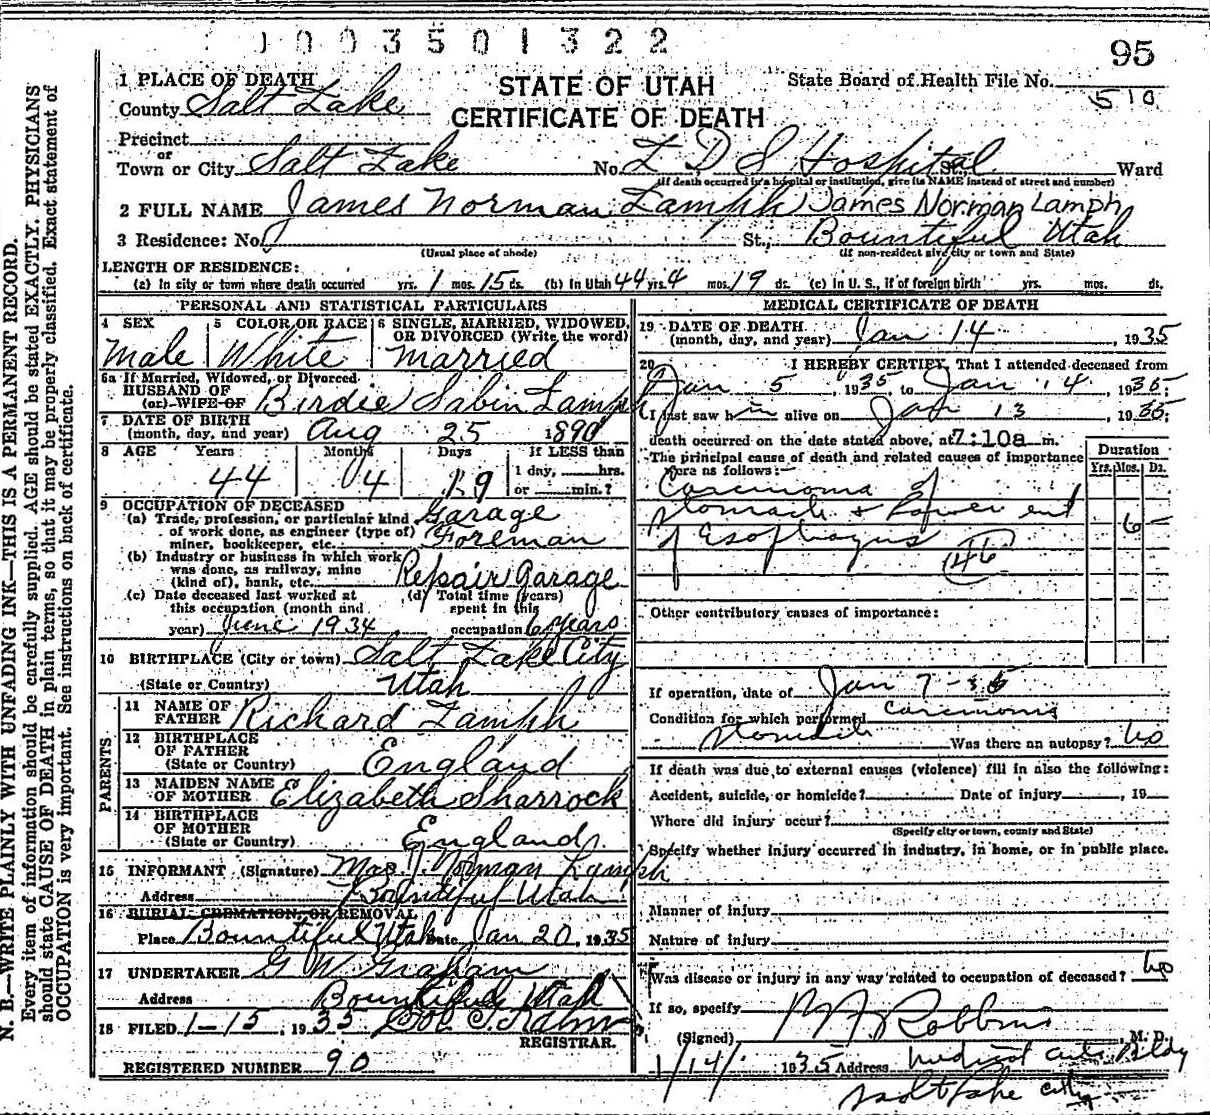 1003501322
95
STATE OF UTAH
CERTIFICATE OF DEATH
State Board of Health File No. 510
1 PLACE OF DEATH
County Salt Lake
Precinct
or
Town or City Salt Lake No. L D S Hospital St., Ward
(If death occurred in a hospital or institution, give its NAME instead of street and number)
2 FULL NAME James Norman Lamph James Norman Lamph
3 Residence: No. St., Bountiful Utah
(Usual place of abode) (If non-resident give city or town and State)
LENGTH OF RESIDENCE:
(a) In city or town where death occurred yrs. 1 mos. 15 ds. (b) In Utah 44 yrs. 4 mos. 19 ds. (c) In U. S., if of foreign birth yrs. mos. ds.
PERSONAL AND STATISTICAL PARTICULARS
4 SEX 5 COLOR OR RACE 6 SINGLE, MARRIED, WIDOWED, OR DIVORCED (Write the word)
Male White Married
6a If Married, Widowed, or Divorced
HUSBAND OF
(or) WIFE OF Birdie Sabin Lamph
7 DATE OF BIRTH
(month, day, and year) Aug 25 1890
8 AGE Years Months Days If LESS than
44 04 19 1 day, hrs.
or min.?
9 OCCUPATION OF DECEASED
(a) Trade, profession, or particular kind Garage
of work done, as engineer (type of) Foreman
miner, bookkeeper, etc.
(b) Industry or business in which work
was done, as railway, mine
(kind of), bank, etc. Repair Garage
(c) Date deceased last worked at (d) Total time (years)
this occupation (month and spent in this
year) June 1934 occupation 6 years
10 BIRTHPLACE (City or town) Salt Lake City
(State or Country) Utah
PARENTS
11 NAME OF
FATHER Richard Lamph
12 BIRTHPLACE
OF FATHER
(State or Country) England
13 MAIDEN NAME
OF MOTHER Elizabeth Sharrock
14 BIRTHPLACE
OF MOTHER
(State or Country) England
15 INFORMANT (Signature) Mrs. J. Norman Lamph
Address Bountiful Utah
16 BURIAL CREMATION, OR REMOVAL
Place Bountiful Utah Date Jan 20, 1935
17 UNDERTAKER G W Graham
Address Bountiful Utah
18 FILED 1-15, 1935
REGISTRAR.
REGISTERED NUMBER 90
MEDICAL CERTIFICATE OF DEATH
19 DATE OF DEATH
(month, day, and year) Jan 14, 1935
20 I HEREBY CERTIFY, That I attended deceased from
Jan 5, 1935, to Jan 14, 1935;
I last saw him alive on Jan 13, 1935;
death occurred on the date stated above, at 7:10a m.
The principal cause of death and related causes of importance
were as follows:
Duration
Yrs. Mos. Ds.
Carcinoma of
stomach & lower end 6 -
of Esophagus
46
Other contributory causes of importance:
If operation, date of Jan 7-35
Condition for which performed carcinoma
stomach Was there an autopsy? no
If death was due to external causes (violence) fill in also the following:
Accident, suicide, or homicide? Date of injury , 19
Where did injury occur?
(Specify city or town, county and State)
Specify whether injury occurred in industry, in home, or in public place.
Manner of injury
Nature of injury
Was disease or injury in any way related to occupation of deceased? no
If so, specify
(Signed) Robbins M. D.
1/14/ 1935 Address Medical Arts Bldg
Salt Lake City
N. B.—WRITE PLAINLY WITH UNFADING INK—THIS IS A PERMANENT RECORD.
Every item of information should be carefully supplied. AGE should be stated EXACTLY. PHYSICIANS
should state CAUSE OF DEATH in plain terms, so that it may be properly classified. Exact statement of
OCCUPATION is very important. See instructions on back of certificate.